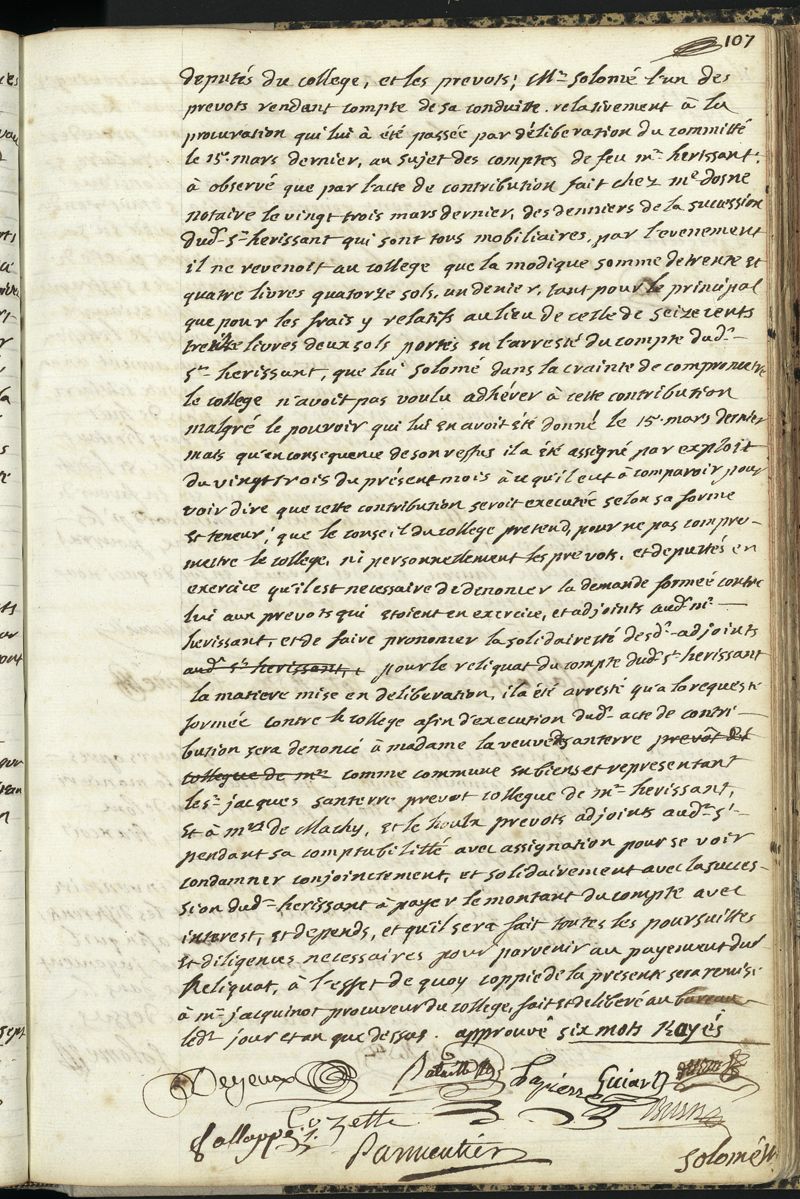 107
deputés du college, et les prevots; Mr. Solomé l'un des
prevots rendant compte de sa conduitte relativement à la
procuration qui lui à été passée par déliberation du committé
le 15e. mars dernier, au sujet des comptes de feu mr. herissant;
à observé que par l'acte de contribution fait chez me. dosne
notaire le vingt trois mars dernier, des denniers de la succession
dud. Sr. herissant qui sont tous mobiliaires, par l'evenement
il ne revenoit au college que la modique somme de trente et
quatre livres quatorze sols, un denier, tant pour le principal
que pour les frais y relatifs au lieu de celle de seize cents
livres deux sols portés en l'arresté du compte dud.
Sr. herissant, que lui Solomé dans la crainte de compromettre
le college n'avoit pas voulu adhérer à cette contribution
malgré le pouvoir qui lui en avoit été donné le 15e. mars dernier
mais qu'en consequence de son reffus il a été assigné par exploit
du vingt trois du présent mois à ce qu'il eut à comparoir pour
voir dire que cette contribution seroit executée selon sa forme
et teneur; que le conseil du college pretend, pour ne pas compro-
mettre le college, ni personnellement les prevots, et deputés en
exercice qu'il est necessaire de denoncer la demande formeé contre
lui aux prevots qui etoient en exercice, et adjoints aud. mr.
herissant, et de faire prononcer la solidaireté desd. adjoints
aud. Sr. herissant, pour le reliquat du compte dud. Sr. herissant
la matiere mise en deliberation, il a été arresté qu'a la requeste
formée contre le college afin d'execution dud. acte de contri-
bution sera denoncé à madame la veuve santerre prevôt et
collegue de mr. comme commune en biens et representant
le Sr. jacques santerre prevot collegue de mr. herissant,
et à mrs. de Machy, et le houx prevots adjoints aud. Sr.
pendant sa comptubilitté avec assignation pour se voir
condamner conjoinctement, et solidairement avec la succes-
sion dud. herissant à payer le montant du compte avec
interest, et depends, et qu'il sera fait toutes les poursuittes
et diligences necessaires pour parvenir au payement dud.
Reliquat, à l'effet de quoy coppie de la presente sera remise
à mr. jacquinot procureur du college, fait et deliberé au bureau
led. jour et an que dessus. approuvé six mots Rayés
Deyeux Bataille Lapierre Guiard
Fallappe Cozette Brun
Parmentier Solomé